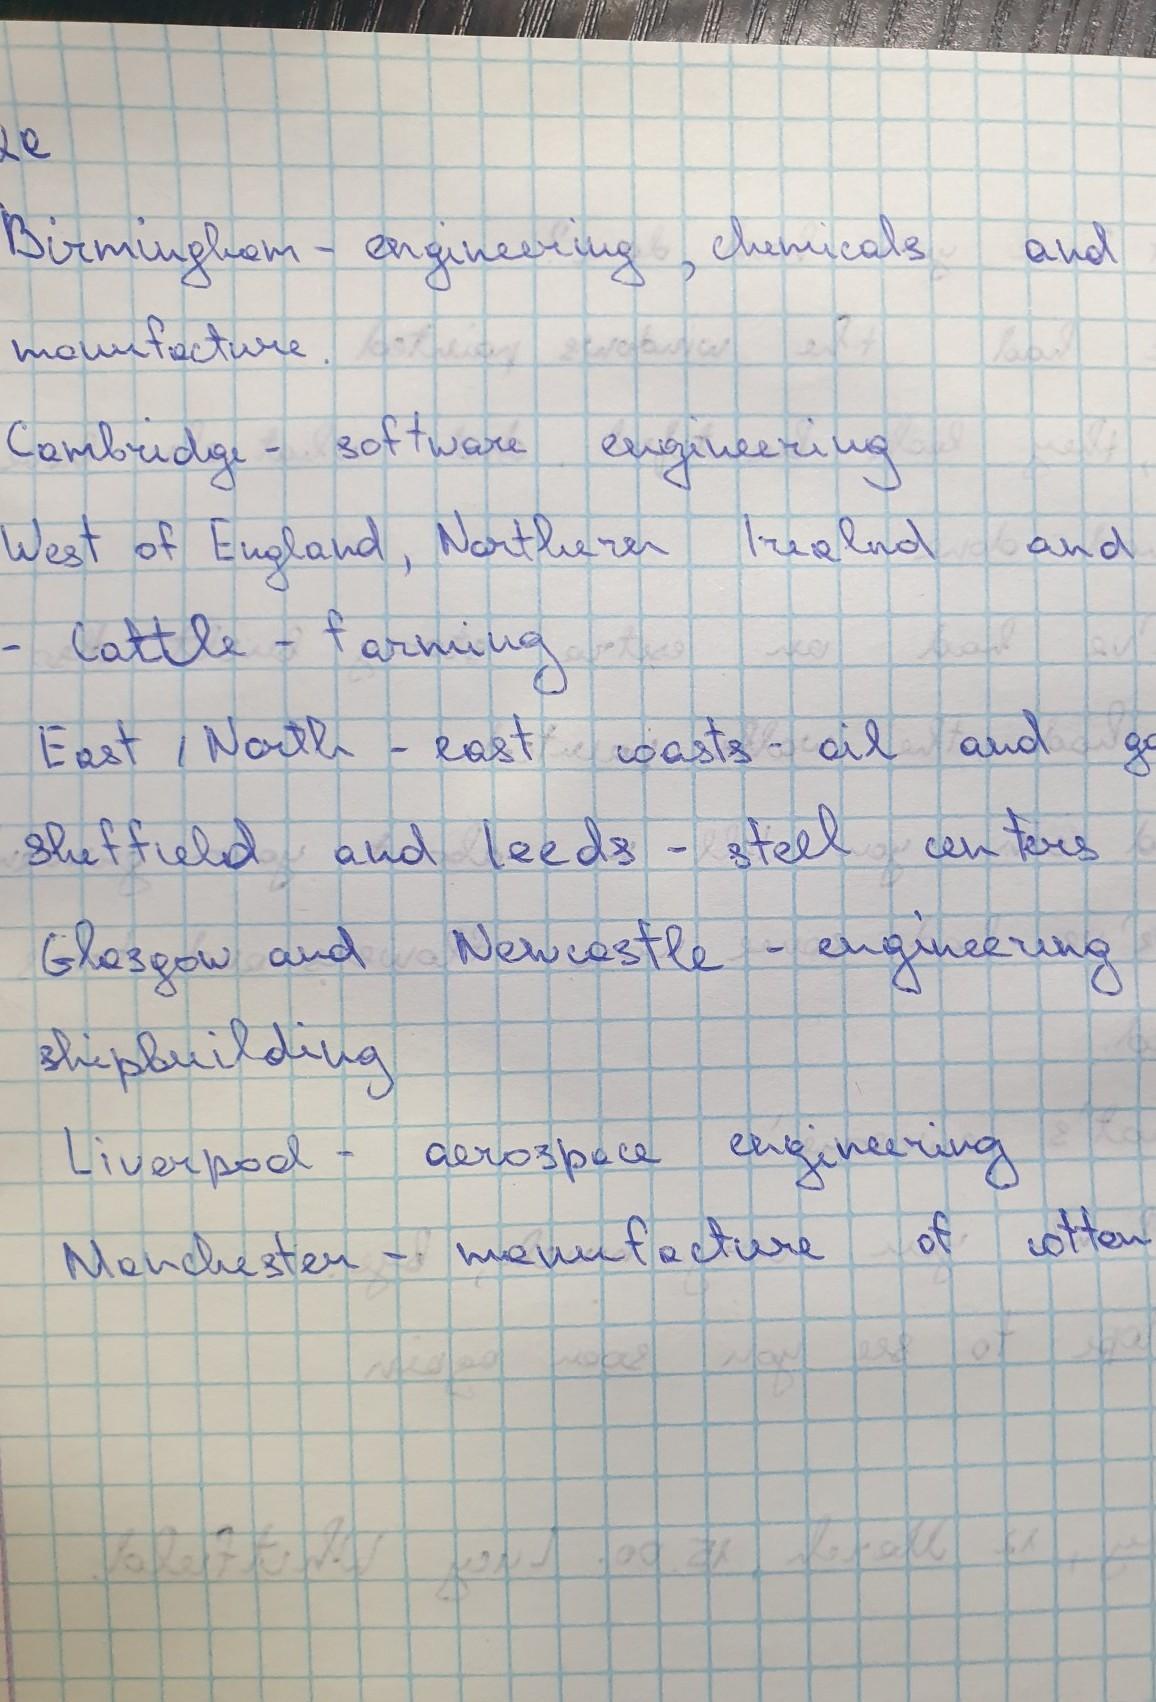 2e
Birmingham - engineering, chemicals and
manufacture.
Cambridge - software engineering
West of England, Northeren Irealnd and
- Cattle - farming
East, North - east coasts - oil and ga
Sheffield and Leeds - steel centers
Glasgow and Newcastle - engineering
shipbuilding
Liverpool - aerospace engineering
Manchester - manufacture of cotton